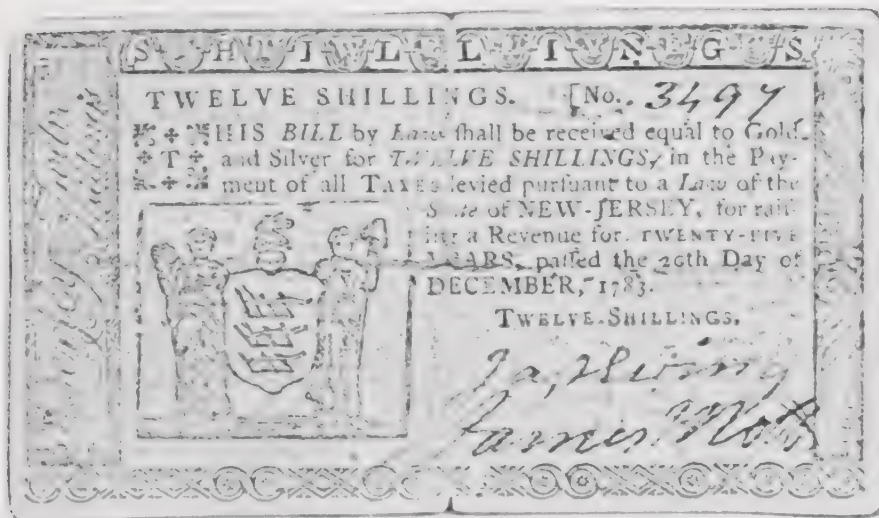 SHILLINGS
TWELVE SHILLINGS. [No. 3497
THIS BILL by Law ſhall be received equal to Gold
and Silver for TWELVE SHILLINGS, in the Pay-
ment of all TAXES levied purſuant to a Law of the
State of NEW-JERSEY, for raiſ-
ing a Revenue for TWENTY-FIVE
YEARS, paſſed the 20th Day of
DECEMBER, 1783.
TWELVE-SHILLINGS.
Ja, Ewing
James Mott
Shillings